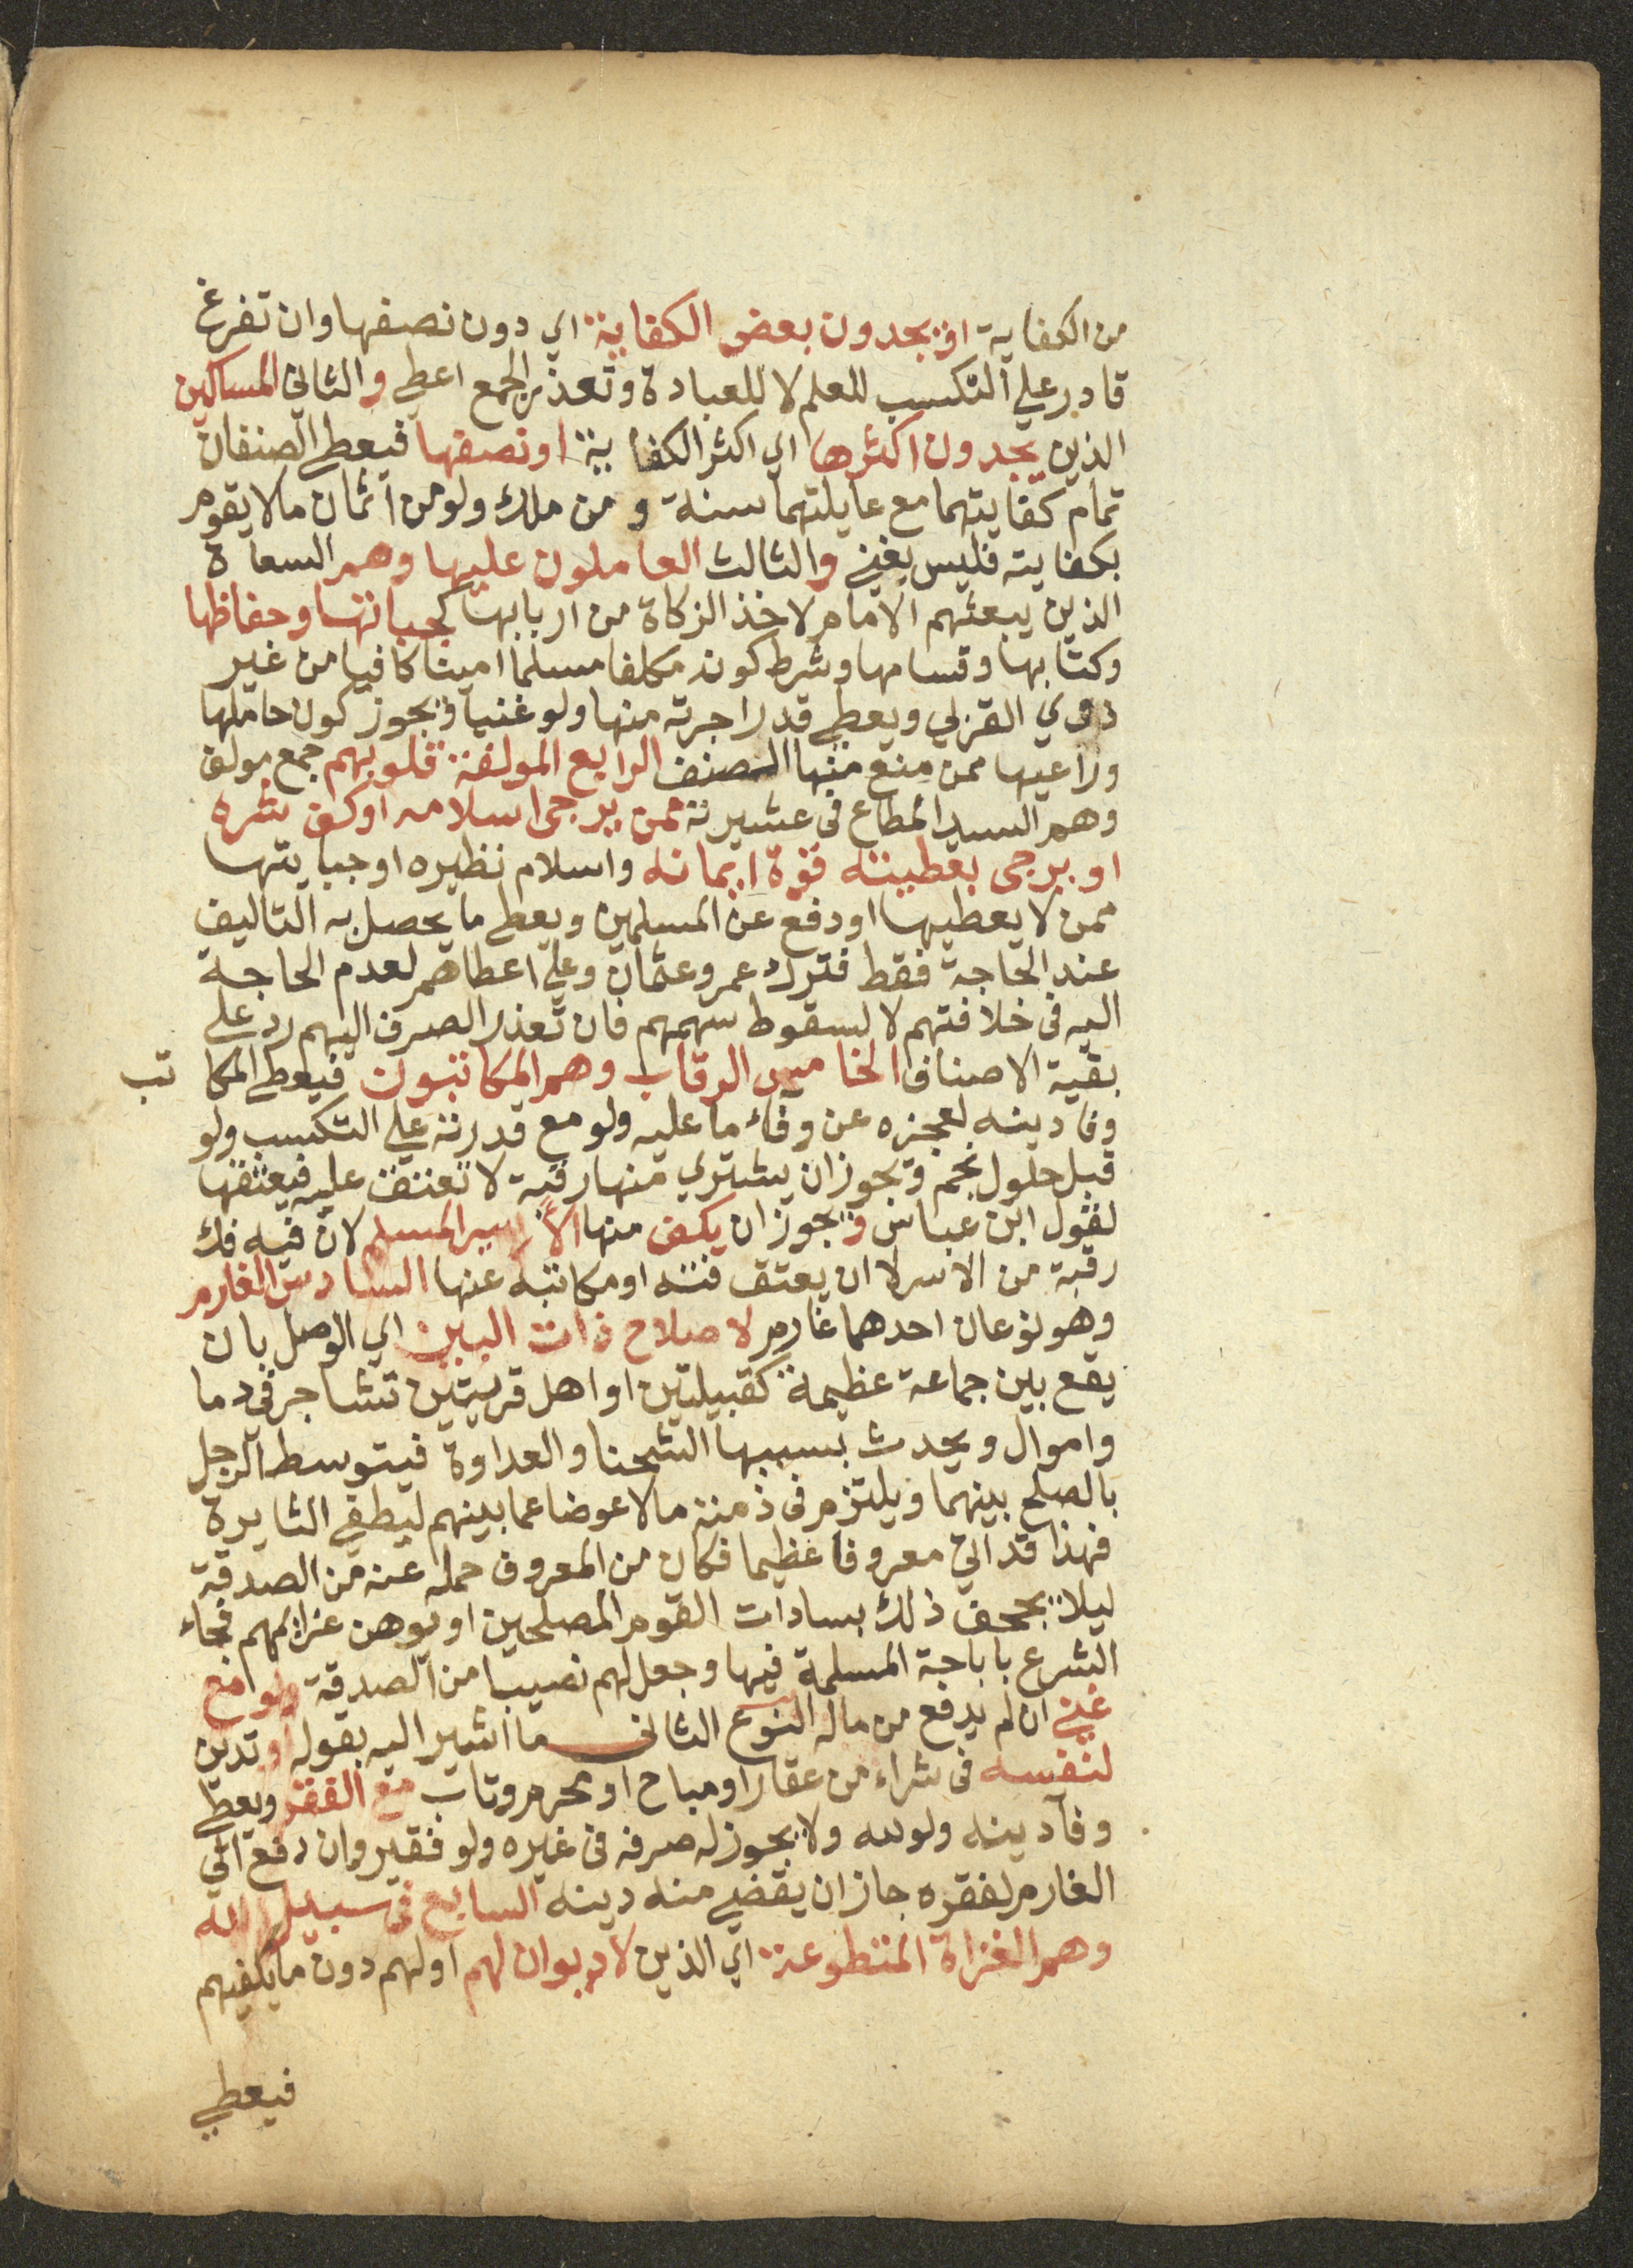 من الكفاية او يجدون بعض الكفاية اي دون نصفها وان تفرغ
قادر علي التكسب للعلم لا للعبادة وتعذر الجمع اعطي والثاني المساكين
الذين يجدون اكثرها اي اكثر الكفاية او نصفها فيعطي الصنفان
تمام كفايتهما مع عايلتهما سنة و من ملك ولو من اثمان ما لا يقوم
بكفايته فليس بغني والثالث العاملون عليها وهم السعاة
الذين يبعثهم الامام لاخذ الزكاة من اربابها كجباتها وحفاظها
وكتابها وقسامها وشرط كونه مكلفا مسلما امينا كافيا من غير
ذوي القربي ويعطي قدر اجرته منها ولو غنيا ويجوز كون حاملها
وراعيها ممن منع منها الصنف الرابع المولفة قلوبهم جمع مولف
وهم السيد المطاع في عشيرته ممن يرجى اسلامه او كف شره
او يرجى بعطيته قوة ايمانه واسلام نظيره او جبايتها
ممن لا يعطيها او دفع عن المسلمين ويعطي ما يحصل به التاليف
عند الحاجة فقط فترك عمر وعثمان وعلي اعطاهم لعدم الحاجة
اليه في خلافتهم لا لسقوط سهمهم فان تعذر الصرف اليهم رد علي
بقية الاصناف الخامس الرقاب وهم المكاتبون فيعطي المكا تب
وفا دينه لعجزه عن وفاء ما عليه ولو مع قدرته علي التكسب ولو
قبل حلول نجم ويجوز ان يشتري منها رقبة لا تعتق عليه فيعتقها
لقول ابن عباس ويجوز ان يفك منها الاسير المسلم لان فيه فك
رقبة من الاسر لا ان يعتق قنه او مكاتبه عنها السادس الغارم
وهو نوعان احدهما غارم لاصلاح ذات البين اي الوصل بان
يقع بين جماعة عظيمة كقبيلتين او اهل قريتين تشاجر في دما
واموال ويحدث بسببها الشحنا والعداوة فيتوسط الرجل
بالصلح بينهما ويلتزم في ذمته مالا عوضا عما بينهم ليطفي الثايرة
فهذا قد اتي معروفا عظيما فكان من المعروف حمله عنه من الصدقة
ليلا يجحف ذلك بسادات القوم المصلحين او يوهن عزايمهم فجاء
الشرع باباحة المسلمة فيها وجعل لهم نصيبا من الصدقة ولو مع
غني ان لم يدفع من ماله النوع الثاني ما اشير اليه بقوله او تدين
لنفسه في شراء من عقار او مباح او محرم وتاب مع الفقر ويعطي
وفا دينه ولو لله ولا يجوز له صرفه في غيره ولو فقير وان دفع الي
الغارم لفقره جاز ان يقضي منه دينه السابع في سبيل الله
وهم الغزاة المتطوعة اي الذين لا ديوان لهم او لهم دون ما يكفيهم
فيعطي